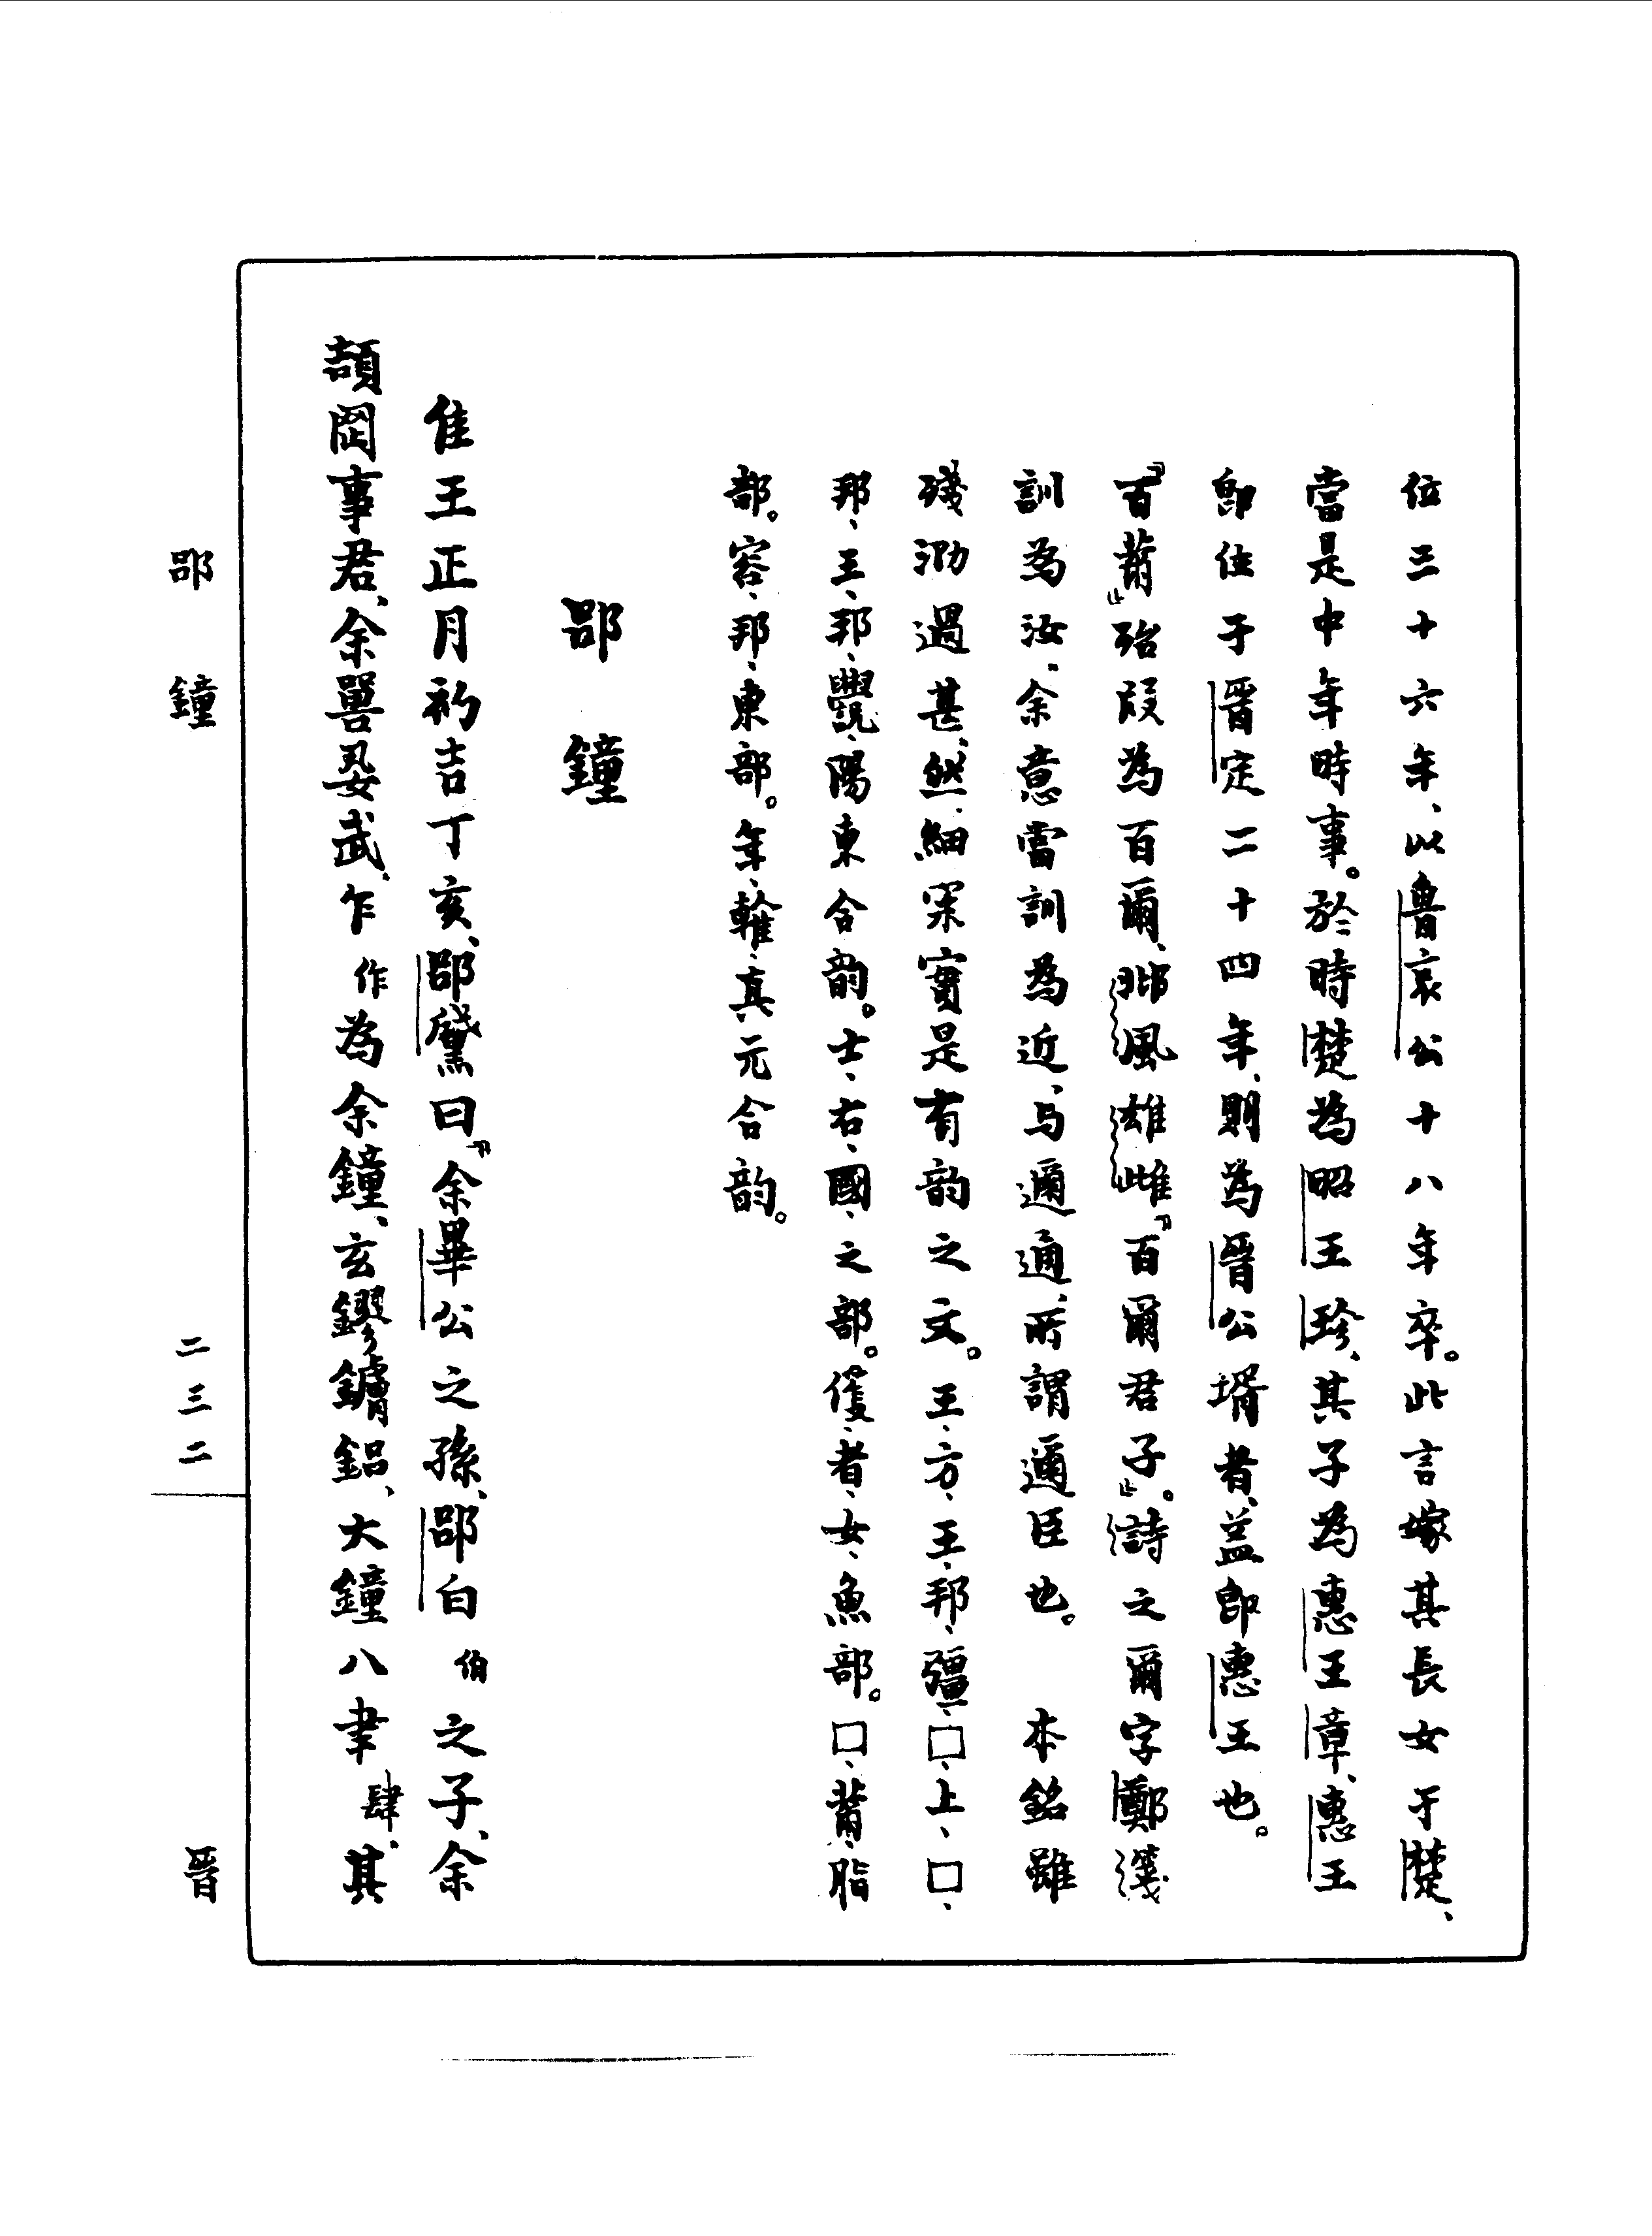 位三十六年、以魯哀公十八年卒。此言嫁其長女于楚、
當是中年時事。於時楚為昭王珍、其子為惠王章、惠王
即位于晉定二十四年、則為晉公壻者、蓋即惠王也。
『百黹』殆叚為百爾、邶風雄雉『百爾君子』。詩之爾字鄭箋
訓為汝、余意當訓為近、与邇通、所謂邇臣也。　本銘雖
殘泐過甚、然細案實是有韵之文。王、方、王、邦、彊、□、上、□、
邦、王、邦、　、陽東合韵。士、右、國、之部。　、者、女、魚部。□、黹、脂
部。容、邦、東部。年、　、真元合韵。
郘鐘
隹王正月初吉丁亥、郘　曰『余畢公之孫、郘白伯之子、余
頡岡事君、余嘼　武、乍作為余鐘、玄鏐鏞鋁、大鐘八聿肆、其
郘鐘
二三二
晉